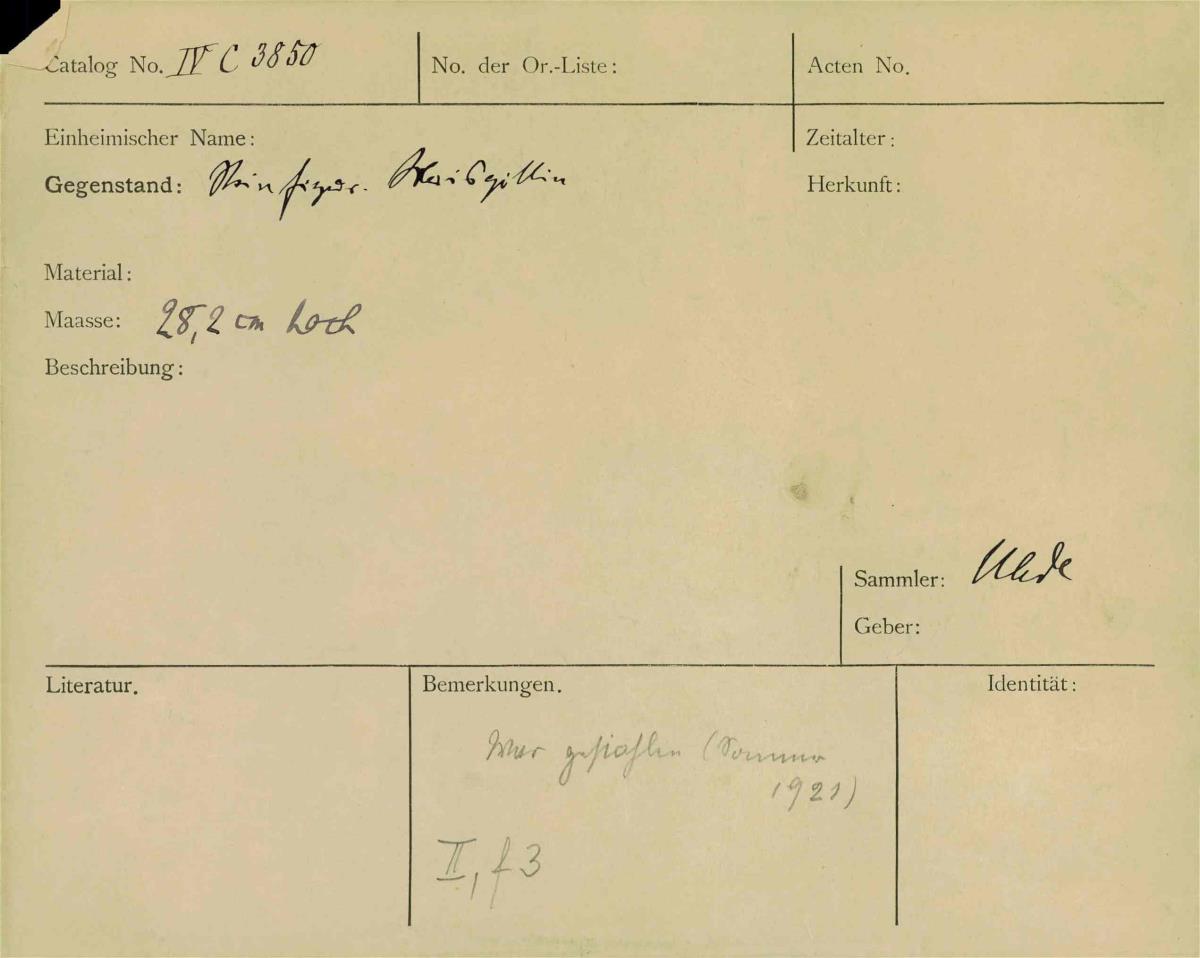 Catalog No. IV C 3850
No. der Or.-Liste:
Acten No.
Einheimischer Name:
Zeitalter:
Gegenstand: Steinfigur. Maisgöttin
Herkunft:
Material:
Maasse: 28,2 cm hoch
Beschreibung:
Sammler: Uhde
Geber:
Literatur.
Bemerkungen.
Identität:
War gestohlen (Sommer
1921)
II, f 3